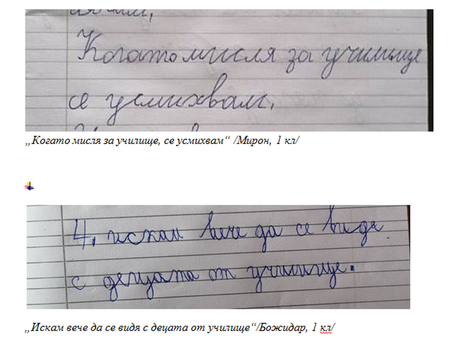 Когато мисля за училище
се усмихвам.
„Когато мисля за училище, се усмихвам“ /Мирон, 1 кл/
4. искам вече да се видя
с децата от училище.
„Искам вече да се видя с децата от училище“/Божидар, 1 кл/